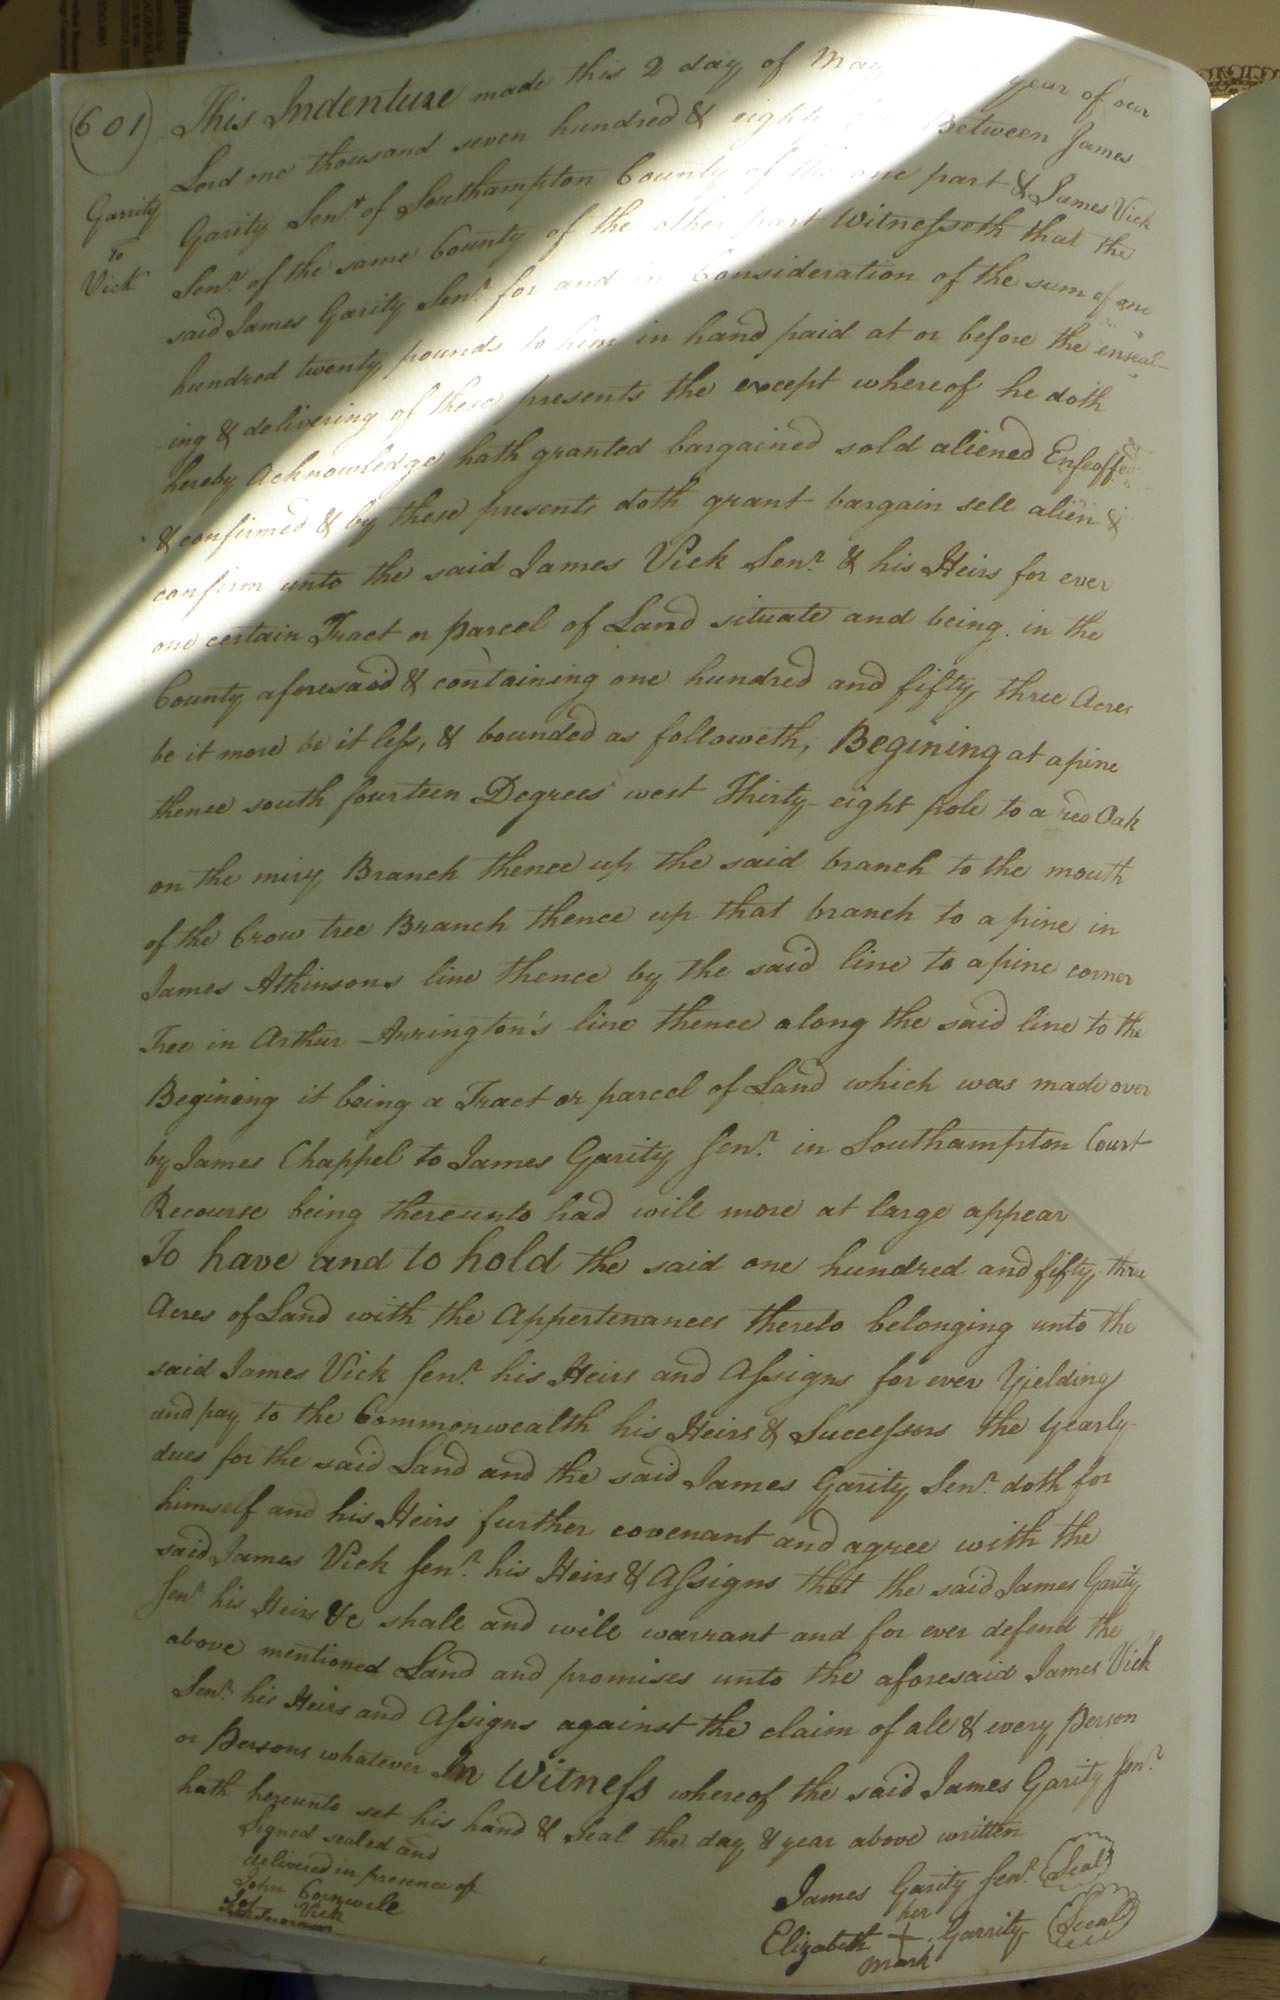 (601)
Garrity
To
Vick
This Indenture made this 2 day of May year of our
Lord one thousand seven hundred & eighty Between James
Garity Senr. of Southampton County of the one part & James Vick
Senr. of the same County of the other part Witnesseth that the
said James Garity Senr. for and in Consideration of the sum of one
hundred twenty pounds to him in hand paid at or before the enseal-
ing & delivering of these presents the except whereof he doth
hereby Acknowledge hath granted bargained sold aliened Enfeoffed
& confirmed & by these presents doth grant bargain sell alien &
confirm unto the said James Vick Senr. & his Heirs for ever
one certain Tract or parcel of Land situate and being in the
County aforesaid & containing one hundred and fifty three Acres
be it more be it less, & bounded as followeth, Begining at a pine
thence south fourteen Degrees west Thirty eight pole to a red Oak
on the miry Branch thence up the said branch to the mouth
of the Crow tree Branch thence up that branch to a pine in
James Atkinsons line thence by the said line to a pine corner
Tree in Arthur Arrington's line thence along the said line to the
Begining it being a Tract or parcel of Land which was made over
by James Chappel to James Garity Senr. in Southampton Court
Recourse being thereunto had will more at large appear
To have and to hold the said one hundred and fifty three
Acres of Land with the Appertenances thereto belonging unto the
said James Vick Senr. his Heirs and Assigns for ever Yielding
and pay to the Commonwealth his Heirs & Successors the yearly
dues for the said Land and the said James Garity Senr. doth for
himself and his Heirs further covenant and agree with the
said James Vick Senr. his Heirs & Assigns that the said James Garity
Senr his Heirs &c shall and will warrant and for ever defend the
above mentioned Land and promises unto the aforesaid James Vick
Senr. his Heirs and Assigns against the claim of all & every Person
or Persons whatever In Witness whereof the said James Garity Senr.
hath hereunto set his hand & Seal the day & year above written
Signed sealed and
delivered in presence of
John Cornwile
Vick
James Garity Senr. (Seal)
her
Elizabeth + Garrity (Seal)
mark